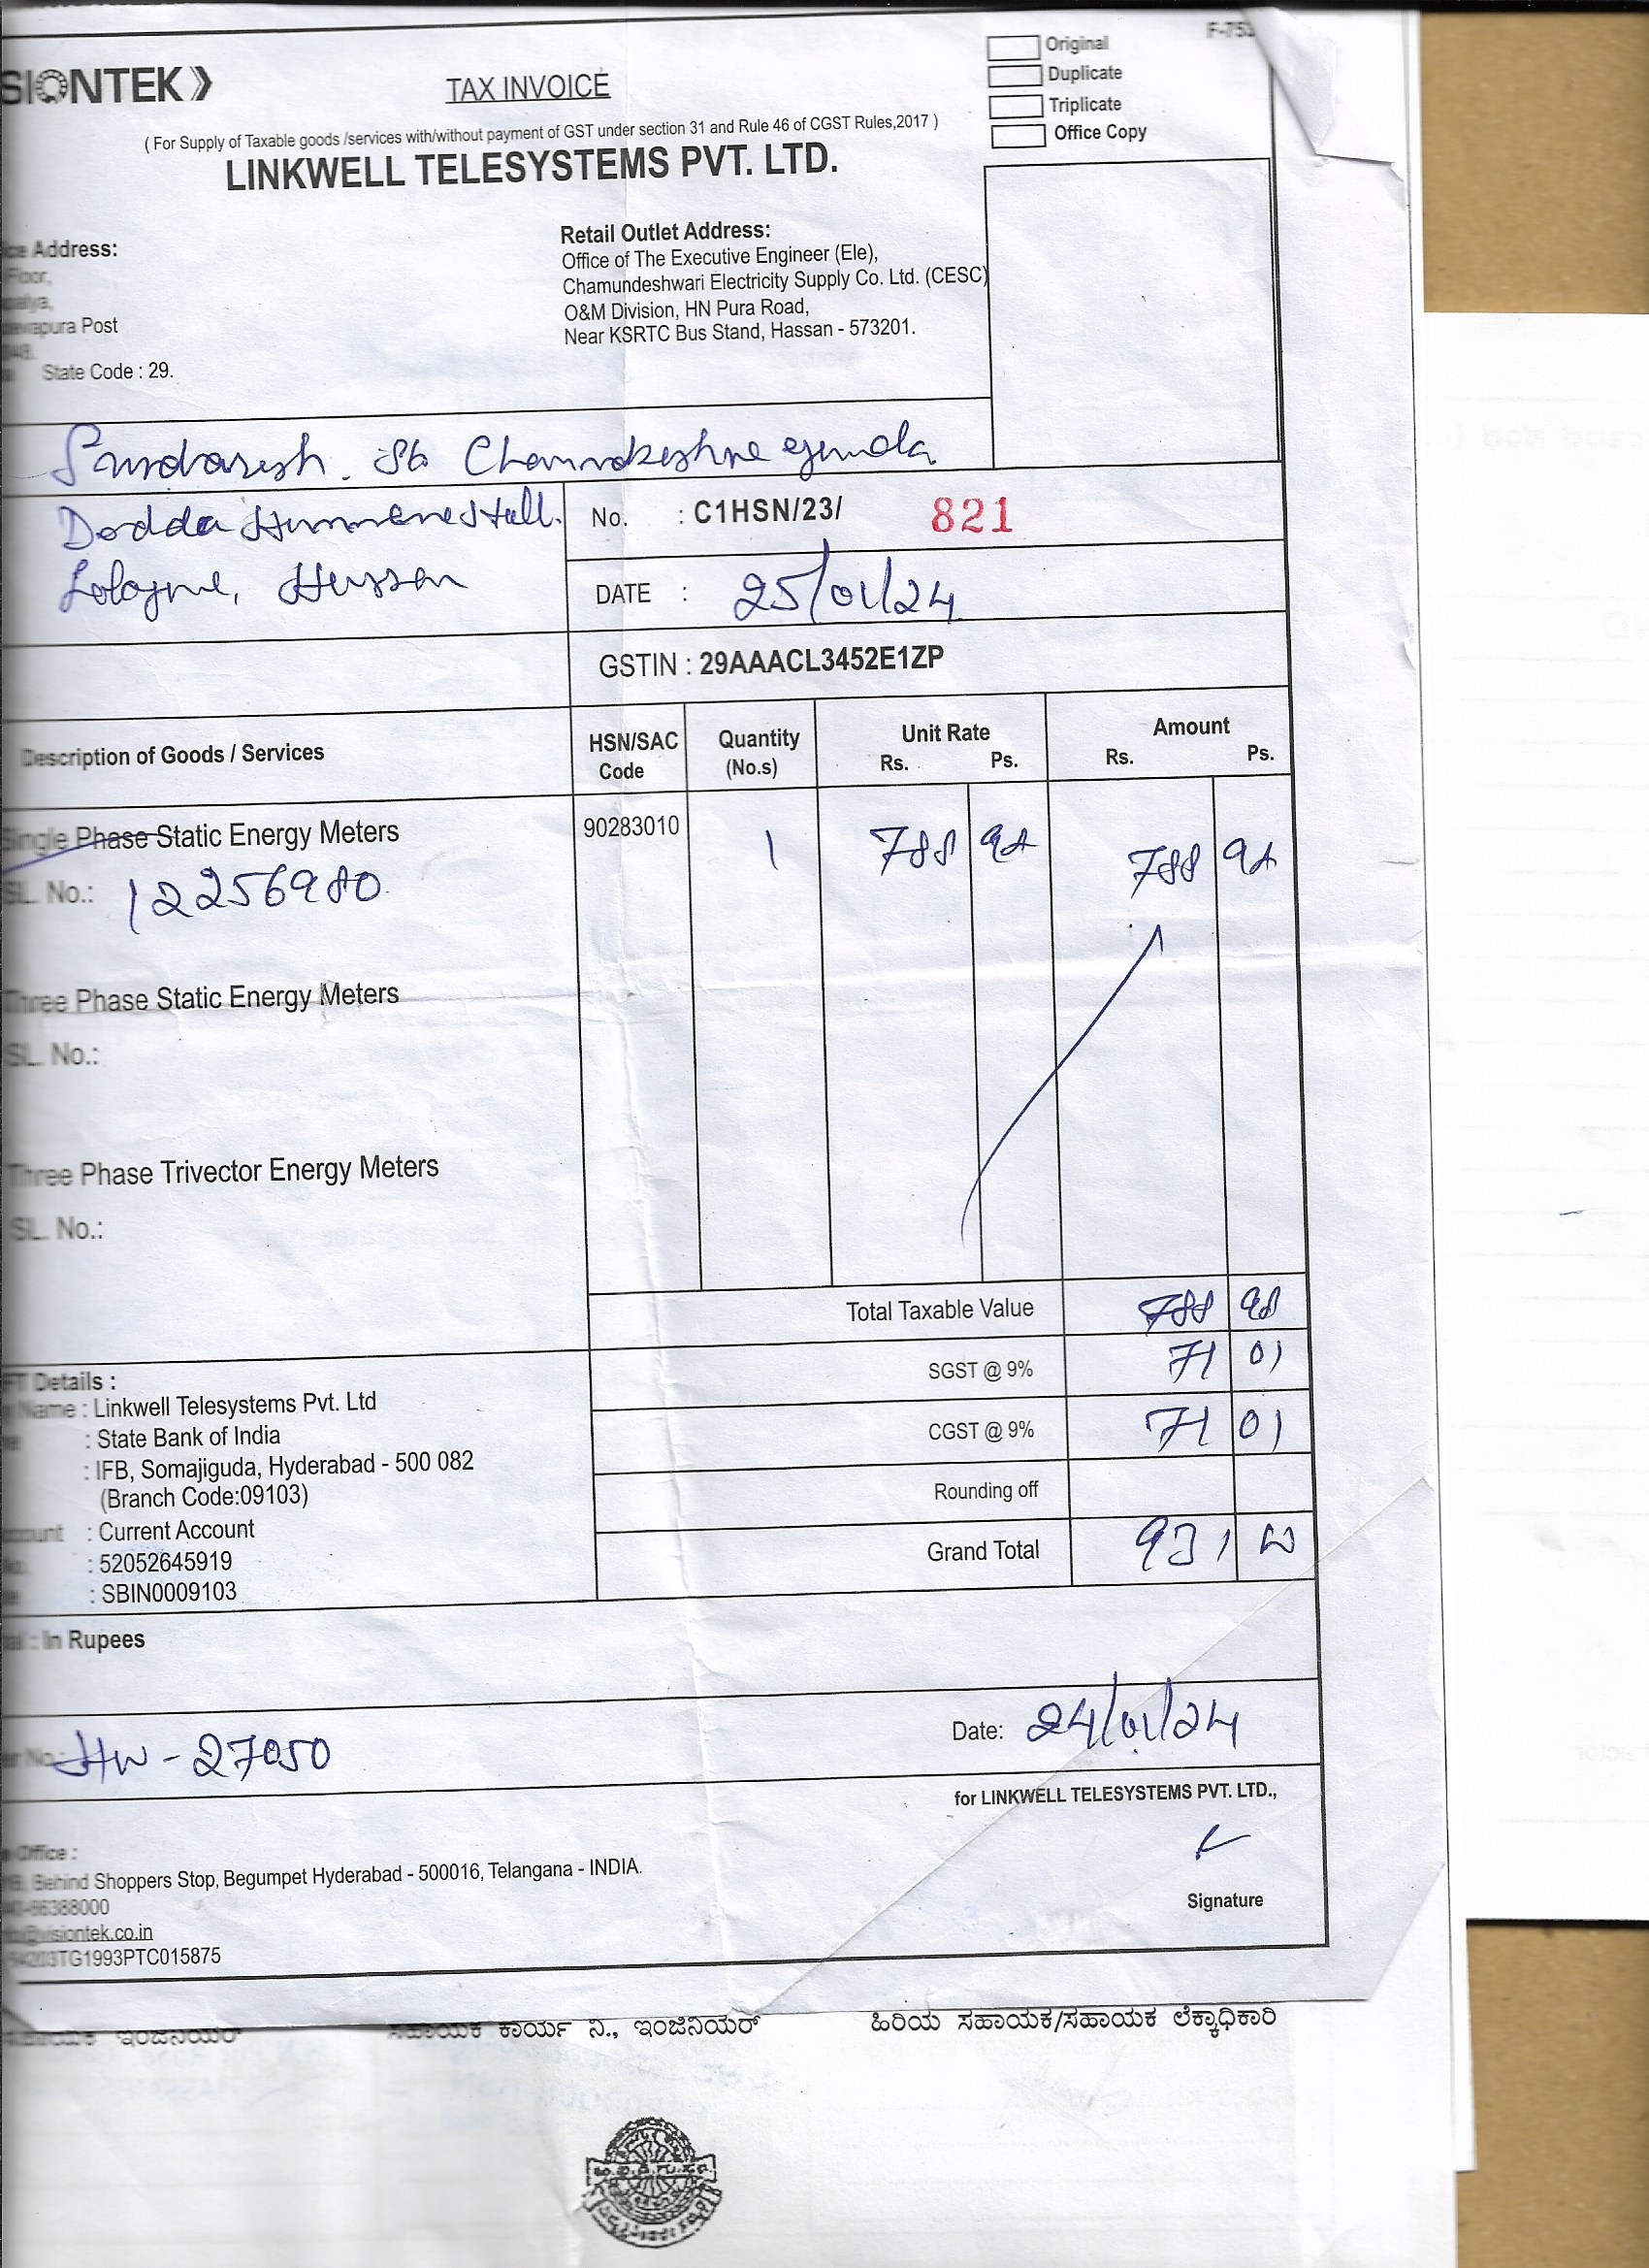 SIONTEK
TAX INVOICE
Original
Duplicate
Triplicate
Office Copy
( For Supply of Taxable goods /services with/without payment of GST under section 31 and Rule 46 of CGST Rules,2017 )
LINKWELL TELESYSTEMS PVT. LTD.
Address:
Floor,
Post
State Code : 29.
Retail Outlet Address:
Office of The Executive Engineer (Ele),
Chamundeshwari Electricity Supply Co. Ltd. (CESC)
O&M Division, HN Pura Road,
Near KSRTC Bus Stand, Hassan - 573201.
Dodda
No. : C1HSN/23/ 821
DATE : 25/01/24
GSTIN : 29AAACL3452E1ZP
Description of Goods / Services HSN/SAC Code Quantity (No.s) Unit Rate Rs. Ps. Amount Rs. Ps.
Single Phase Static Energy Meters 90283010 1 788 98 788 98
SL. No.: 12256980
Three Phase Static Energy Meters
SL. No.:
Three Phase Trivector Energy Meters
SL. No.:
Total Taxable Value 788 98
SGST @ 9% 71 01
CGST @ 9% 71 01
Rounding off
Grand Total 931
Details :
Name : Linkwell Telesystems Pvt. Ltd
: State Bank of India
: IFB, Somajiguda, Hyderabad - 500 082
(Branch Code:09103)
: Current Account
: 52052645919
: SBIN0009103
: In Rupees
HW - 27050
Date: 24/01/24
for LINKWELL TELESYSTEMS PVT. LTD.,
Office :
Behind Shoppers Stop, Begumpet Hyderabad - 500016, Telangana - INDIA.
66388000
visiontek.co.in
TG1993PTC015875
Signature
ಇಂಜಿನಿಯರ್ ಸಹಾಯಕ ಕಾರ್ಯ ನಿ., ಇಂಜಿನಿಯರ್ ಹಿರಿಯ ಸಹಾಯಕ/ಸಹಾಯಕ ಲೆಕ್ಕಾಧಿಕಾರಿ